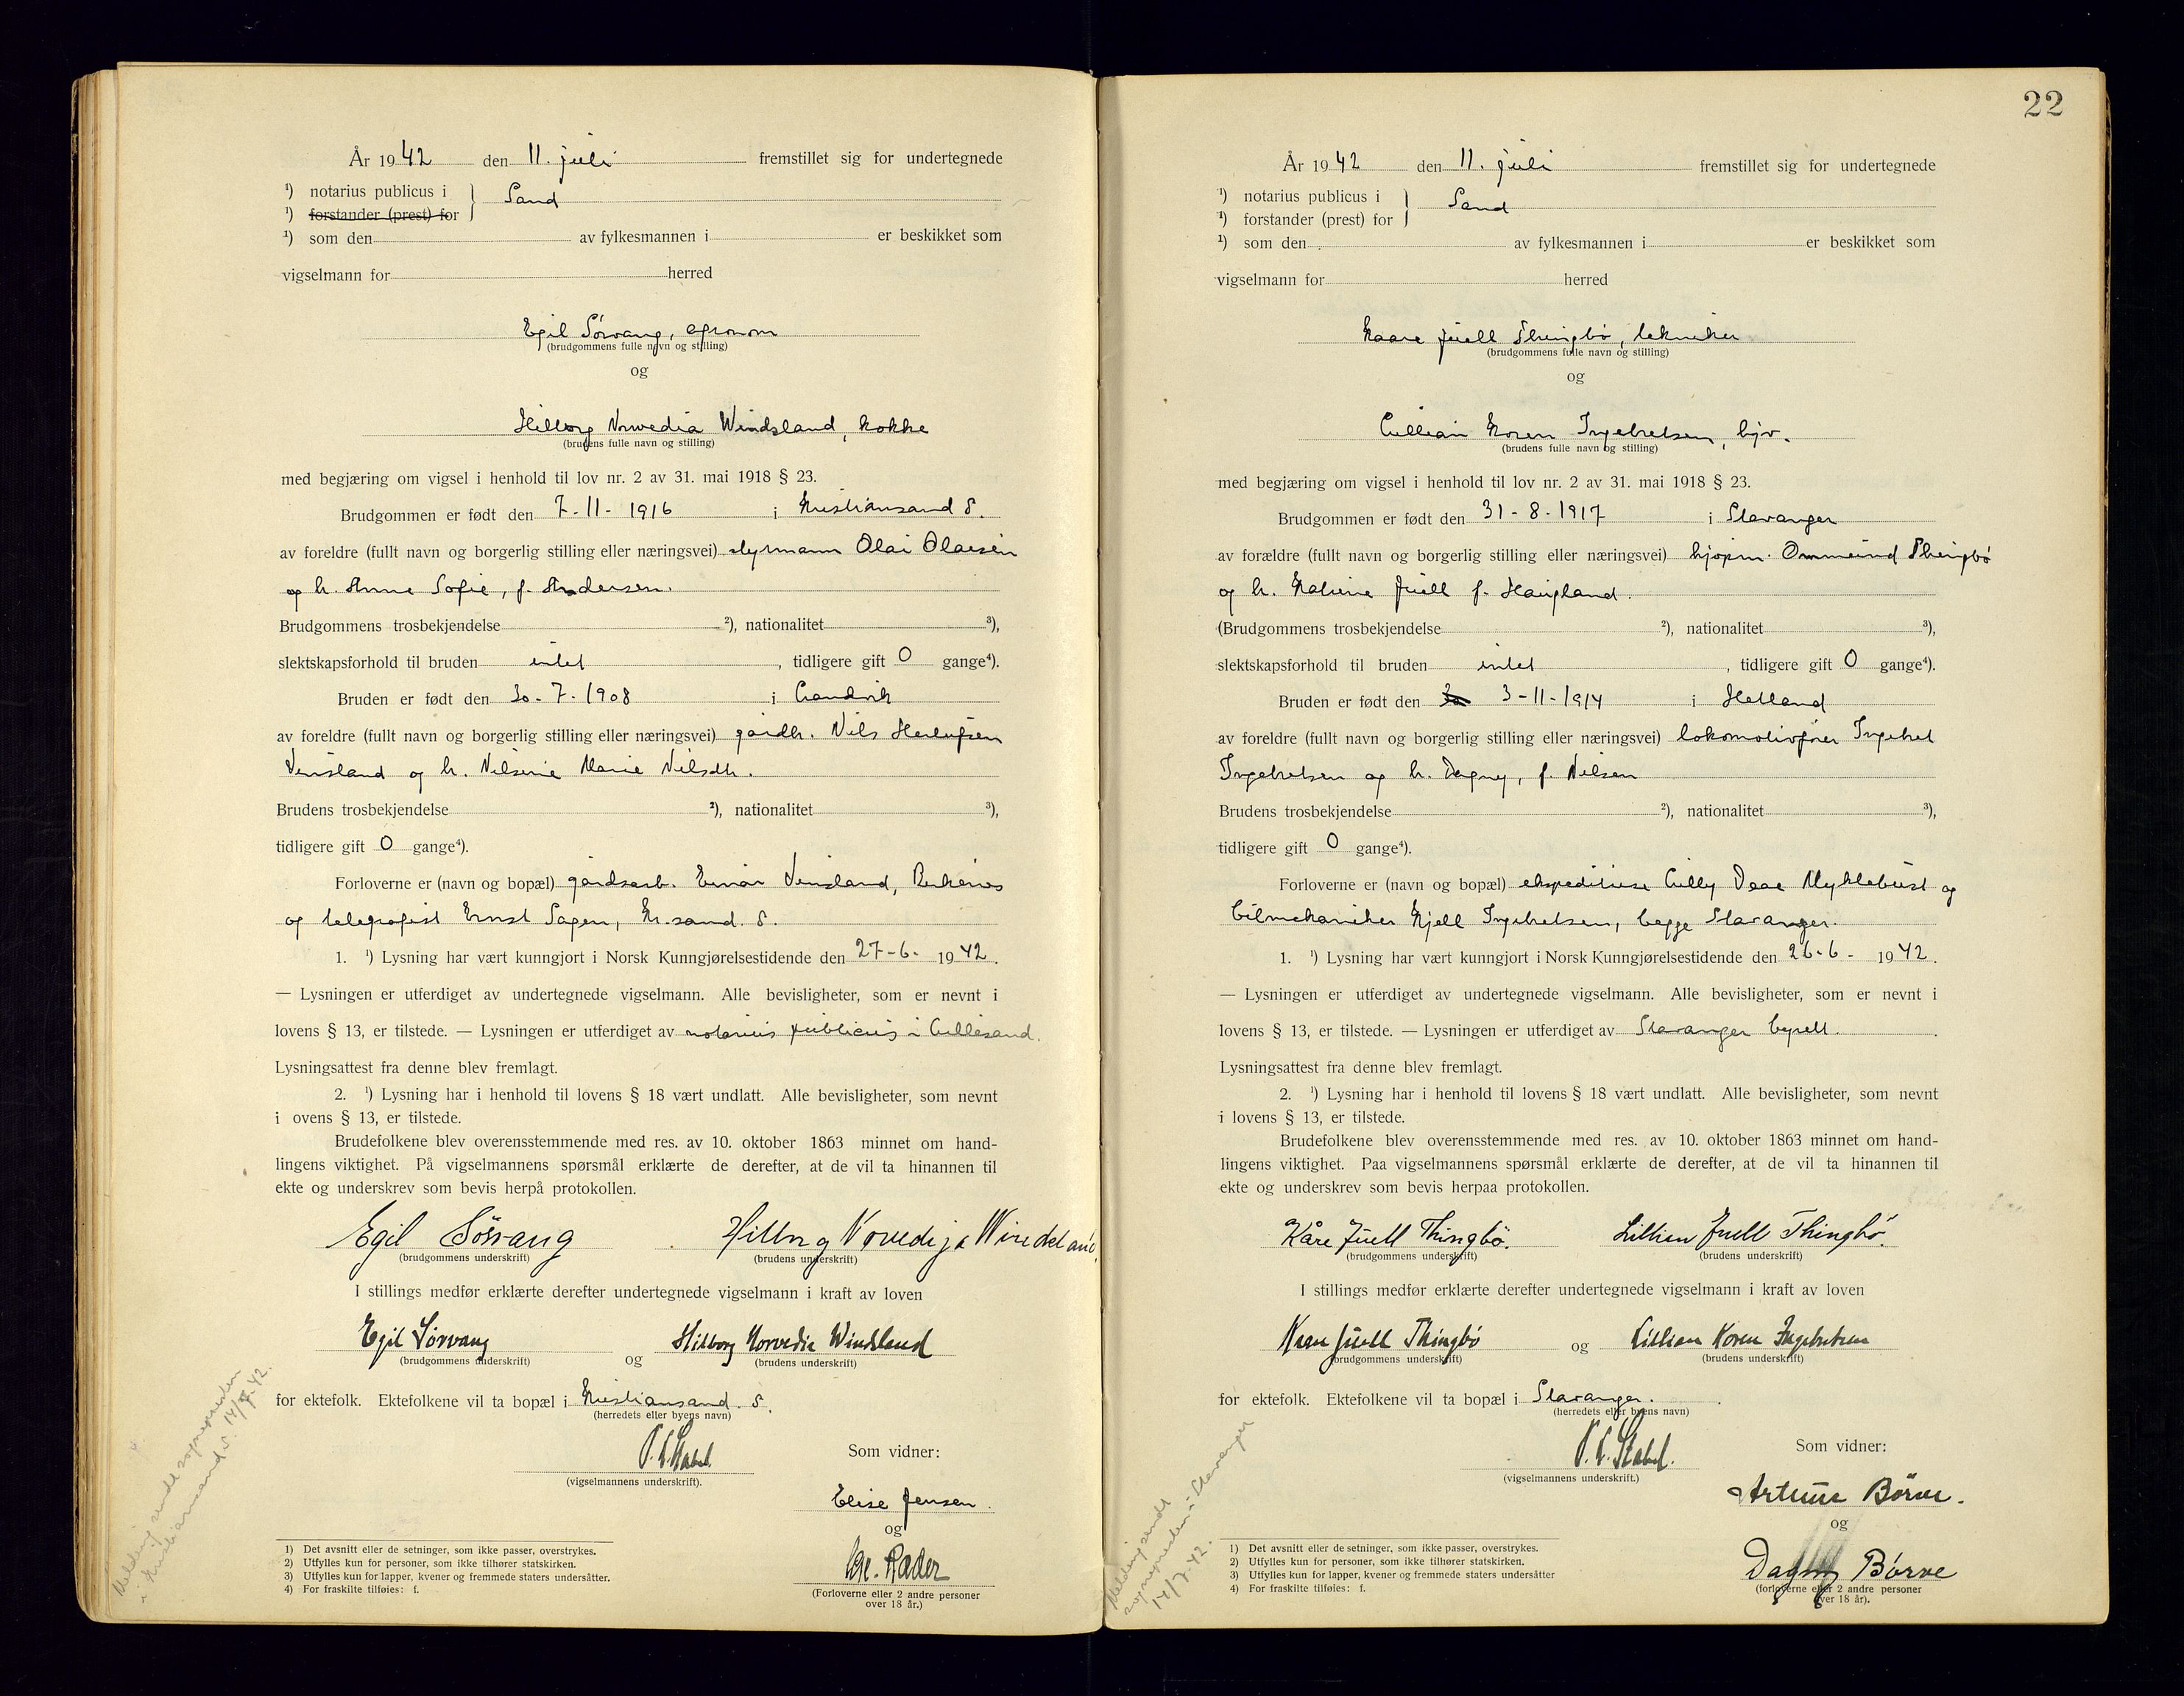 År 1942 den 11. juli fremstillet sig for undertegnede
¹) notarius publicus i
Sand
¹) forstander (prest) for
¹) som den av fylkesmannen i er beskikket som
vigselmann for herred
Egil Sörvang, agronom
(brudgommens fulle navn og stilling)
og
Hilborg Norvedia Windsland, kokke
(brudens fulle navn og stilling)
med begjæring om vigsel i henhold til lov nr. 2 av 31. mai 1918 § 23.
Brudgommen er født den 7-11-1916 i Kristiansand S.
av foreldre (fullt navn og borgerlig stilling eller næringsvei) styrmann Olai Olaisen
og h. Anne Sofie, f. Andersen.
Brudgommens trosbekjendelse ²), nationalitet ³),
slektskapsforhold til bruden intet, tidligere gift 0 gange⁴).
Bruden er født den 30-7-1908 i
av foreldre (fullt navn og borgerlig stilling eller næringsvei) gårdbr. Nils Herlufsen
Vinsland og h. Nilsine Marie Nilsdtr.
Brudens trosbekjendelse ²), nationalitet ³),
tidligere gift 0 gange⁴).
Forloverne er (navn og bopæl) gårdsarb. Einar Vinsland, Birkenes
og telegrafist Ernst Sagen, Kr.sand. S.
1. ¹) Lysning har vært kunngjort i Norsk Kunngjørelsestidende den 27-6- 1942.
— Lysningen er utferdiget av undertegnede vigselmann. Alle bevisligheter, som er nevnt i
lovens § 13, er tilstede. — Lysningen er utferdiget av notarius publicus i Lillesand.
Lysningsattest fra denne blev fremlagt.
2. ¹) Lysning har i henhold til lovens § 18 vært undlatt. Alle bevisligheter, som nevnt
i ovens § 13, er tilstede.
Brudefolkene blev overensstemmende med res. av 10. oktober 1863 minnet om hand-
lingens viktighet. På vigselmannens spørsmål erklærte de derefter, at de vil ta hinannen til
ekte og underskrev som bevis herpå protokollen.
Egil Sörvang Hilborg Novedija Windsland
(brudgommens underskrift) (brudens underskrift)
I stillings medfør erklærte derefter undertegnede vigselmann i kraft av loven
Egil Sörvang og Hilborg Norvedia Windsland
(brudgommens underskrift) (brudens underskrift)
for ektefolk. Ektefolkene vil ta bopæl i Kristiansand. S.
(herredets eller byens navn)
Stabel
(vigselmannens underskrift).
Som vidner:
Elise Jensen.
og
Ræder
(Forloverne eller 2 andre personer
over 18 år.)
1) Det avsnitt eller de setninger, som ikke passer, overstrykes.
2) Utfylles kun for personer, som ikke tilhører statskirken.
3) Utfylles kun for lapper, kvener og fremmede staters undersåtter.
4) For fraskilte tilføies: f.
Melding sendt sognepresten
i Kristiansand S. 14/7.42.
22
År 1942 den 11. juli fremstillet sig for undertegnede
¹) notarius publicus i
Sand
¹) forstander (prest) for
¹) som den av fylkesmannen i er beskikket som
vigselmann for herred
Kaare Juell Thingbö, tekniker
(brudgommens fulle navn og stilling)
og
Lillian Koren Ingebretsen, hjv.
(brudens fulle navn og stilling)
med begjæring om vigsel i henhold til lov nr. 2 av 31. mai 1918 § 23.
Brudgommen er født den 31-8-1917 i Stavanger
av forældre (fullt navn og borgerlig stilling eller næringsvei) kjøpm. Ommund Thingbö
og h. Katrine Juell f. Haugland.
(Brudgommens trosbekjendelse ²), nationalitet ³),
slektskapsforhold til bruden intet, tidligere gift 0 gange⁴).
Bruden er født den 3-11-1914 i Hetland
av foreldre (fullt navn og borgerlig stilling eller næringsvei) lokomotivfører Ingebret
Ingebretsen og h. Dagny, f. Nilsen
Brudens trosbekjendelse ²), nationalitet ³),
tidligere gift 0 gange⁴).
Forloverne er (navn og bopæl) ekspeditrise Lilly Myklebust og
bilmekaniker Kjell Ingebretsen, begge Stavanger.
1. ¹) Lysning har vært kunngjort i Norsk Kunngjørelsestidende den 26-6- 1942.
— Lysningen er utferdiget av undertegnede vigselmann. Alle bevisligheter, som er nevnt i
lovens § 13, er tilstede. — Lysningen er utferdiget av Stavanger byrett.
Lysningsattest fra denne blev fremlagt.
2. ¹) Lysning har i henhold til lovens § 18 vært undlatt. Alle bevisligheter, som nevnt
i lovens § 13, er tilstede.
Brudefolkene blev overensstemmende med res. av 10. oktober 1863 minnet om hand-
lingens viktighet. Paa vigselmannens spørsmål erklærte de derefter, at de vil ta hinannen til
ekte og underskrev som bevis herpaa protokollen.
Kåre Juell Thingbö. Lillian Juell Thingbö.
(brudgommens underskrift) (brudens underskrift)
I stillings medfør erklærte derefter undertegnede vigselmann i kraft av loven
Kaare Juell Thingbö og Lillian Koren Ingebretsen
(brudgommens underskrift) (brudens underskrift)
for ektefolk. Ektefolkene vil ta bopæl i Stavanger.
(herredets eller byens navn)
Stabel.
(vigselmannens underskrift.)
Som vidner:
Børve.
og
Dagny Børve
(forloverne eller 2 andre personer
over 18 år).
1) Det avsnitt eller de setninger, som ikke passer, overstrykes.
2) Utfylles kun for personer, som ikke tilhører statskirken.
3) Utfylles kun for lapper, kvener og fremmede staters undersåtter
4) For fraskilte tilføies: f.
Melding sendt
sognepresten i Stavanger
14/7.42.